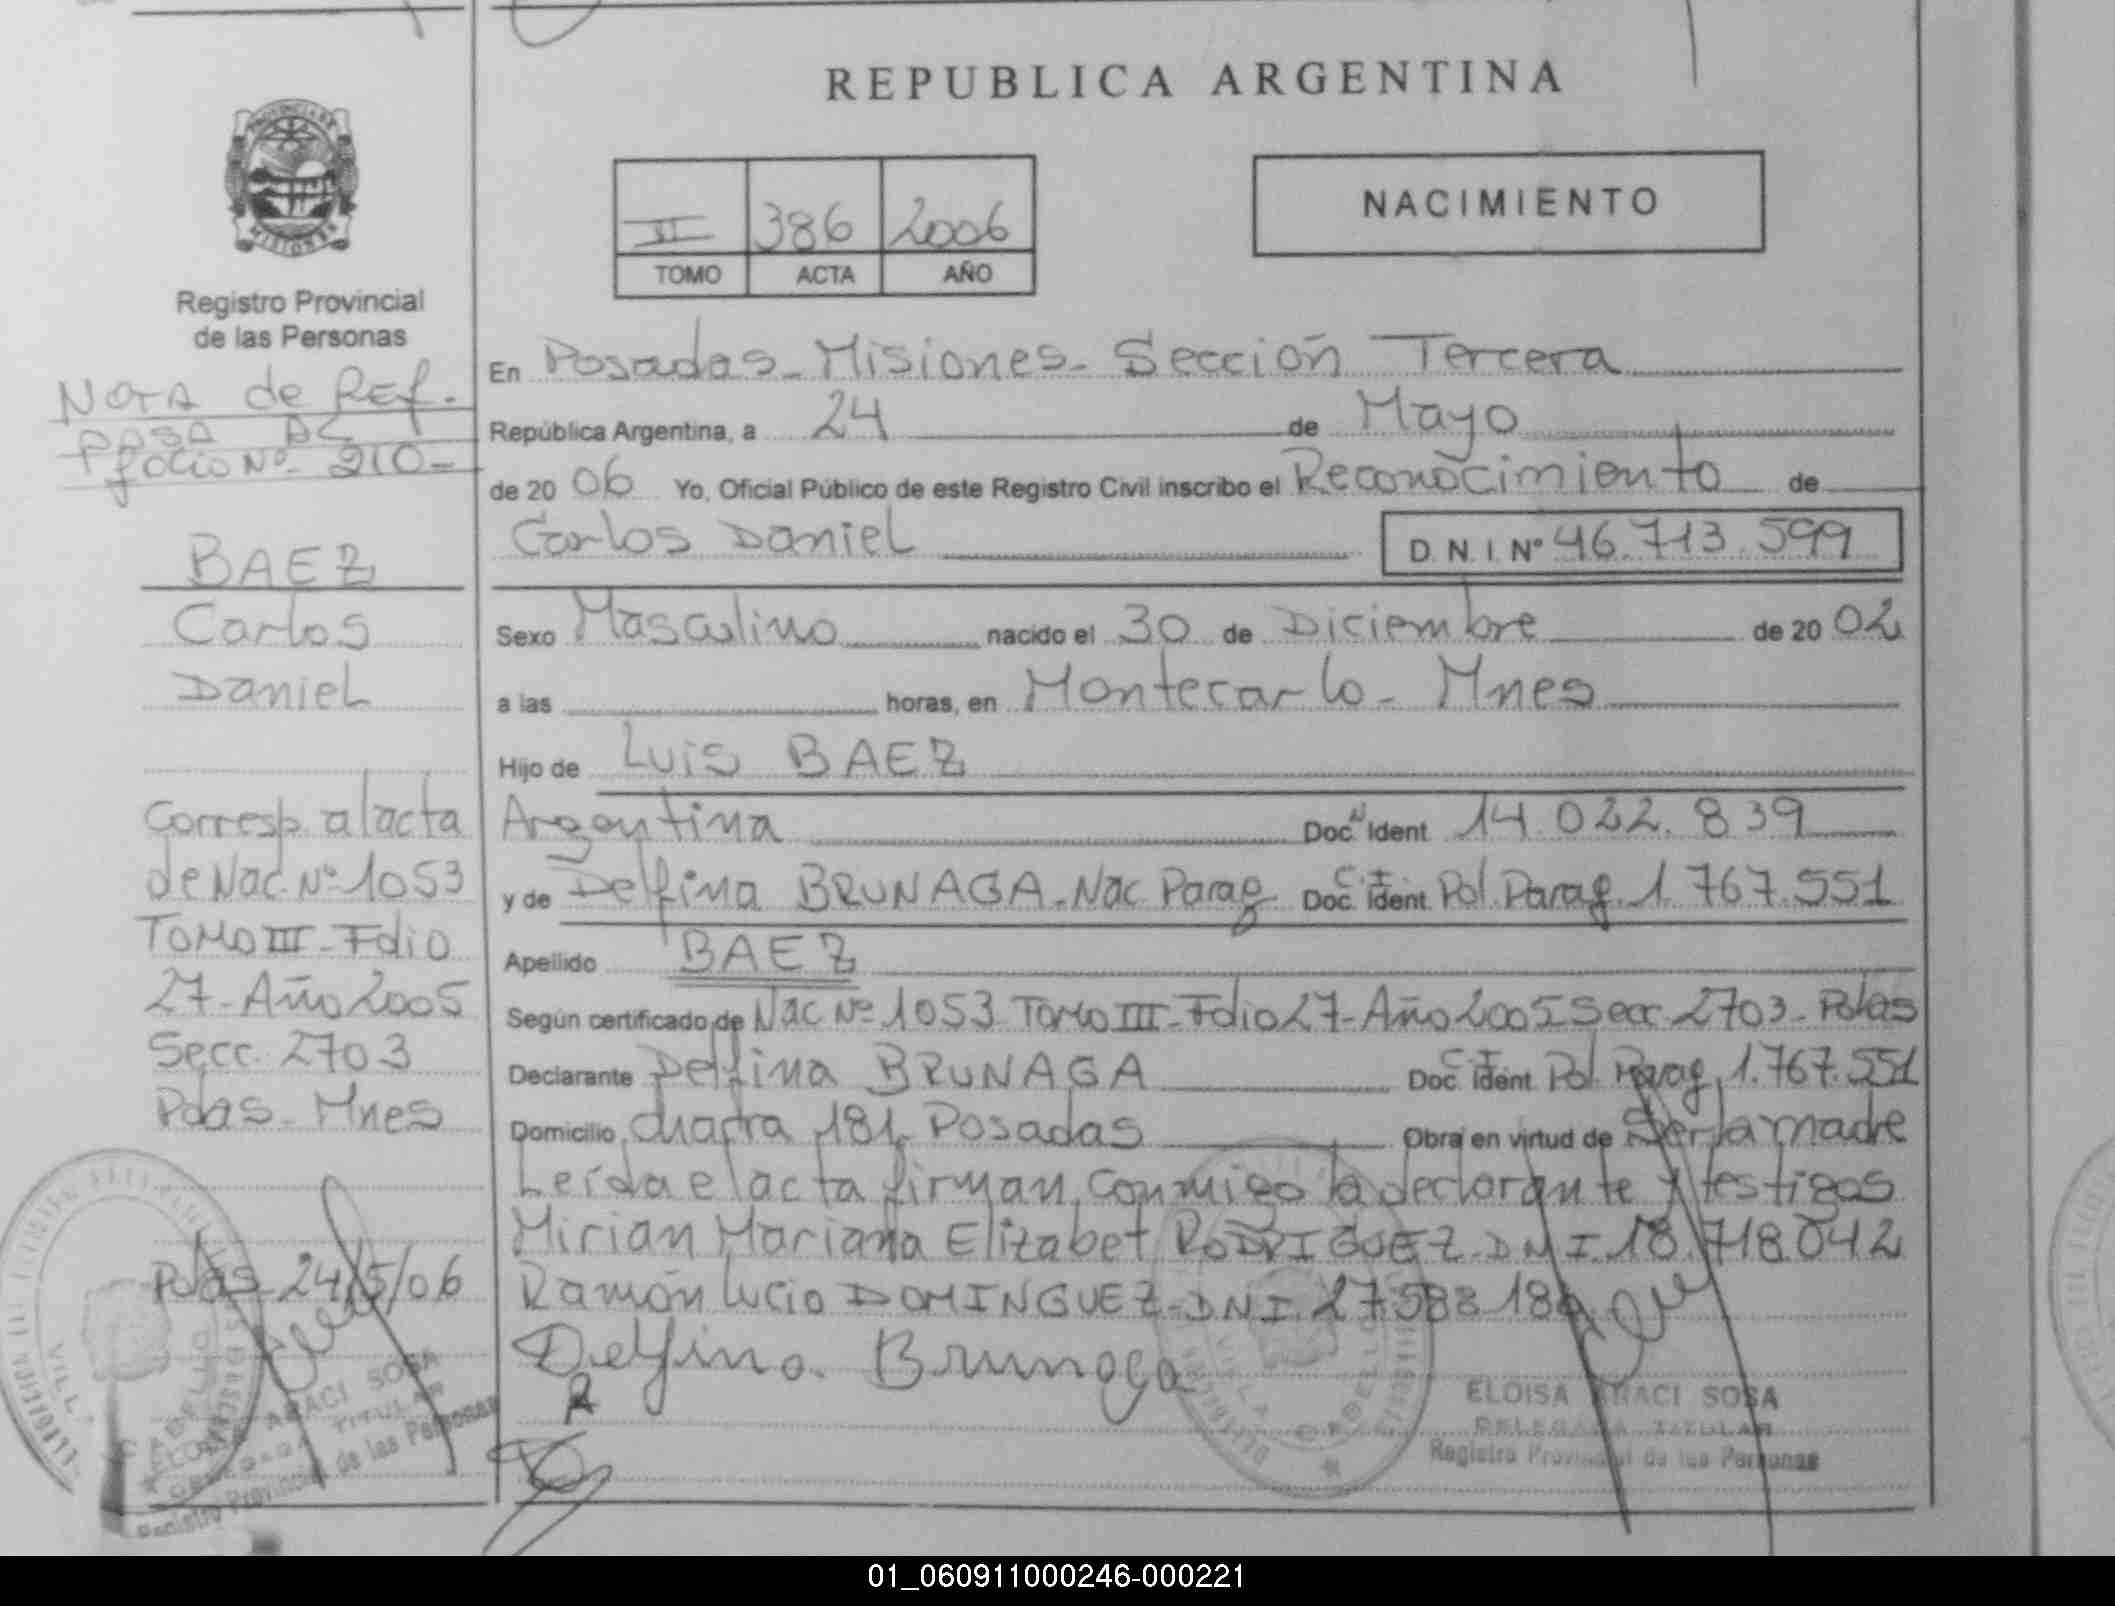 REPUBLICA ARGENTINA
PROVINCIA DE
MISIONES
Registro Provincial
de las Personas
II 386 2006
TOMO ACTA AÑO
NACIMIENTO
NOTA de REF.
PASA AL
folio Nº 210-
BAEZ
Carlos
Daniel
Corresp. al acta
de Nac. Nº 1053
TOMO III - Folio
27 - Año 2005
Secc. 2703
Pdas - Mnes
Pdas 24/5/06
En Posadas - Misiones - Sección Tercera
República Argentina, a 24 de Mayo
de 20 06 Yo, Oficial Público de este Registro Civil inscribo el Reconocimiento de
Carlos Daniel D. N. I. Nº 46.713.599
Sexo Masculino nacido el 30 de Diciembre de 20 02
a las horas, en Montecarlo - Mnes
Hijo de Luis BAEZ
Argentina Doc. Ident. 14.022.839
y de Delfina BRUNAGA - Nac Parag C.I. Doc. Ident. Pol. Parag. 1.767.551
Apellido BAEZ
Según certificado de Nac Nº 1053 TOMO III - Folio 27 - Año 2005 Secc. 2703 - Pdas
Declarante Delfina BRUNAGA C.I. Doc. Ident. Pol. Parag. 1.767.551
Domicilio chacra 181, Posadas Obra en virtud de Ser la madre
Leída el acta firman conmigo la declarante y testigos
Mirian Mariana Elizabet RODRIGUEZ - DNI. 18.718.042
Ramón Lucio DOMINGUEZ - DNI.
Delfina Brunaga
ELOISA ARACI SOSA
DELEGADA TITULAR
Registro Provincial de las Personas
ELOISA ARACI SOSA
DELEGADA TITULAR
Registro Provincial de las Personas
01_060911000246-000221